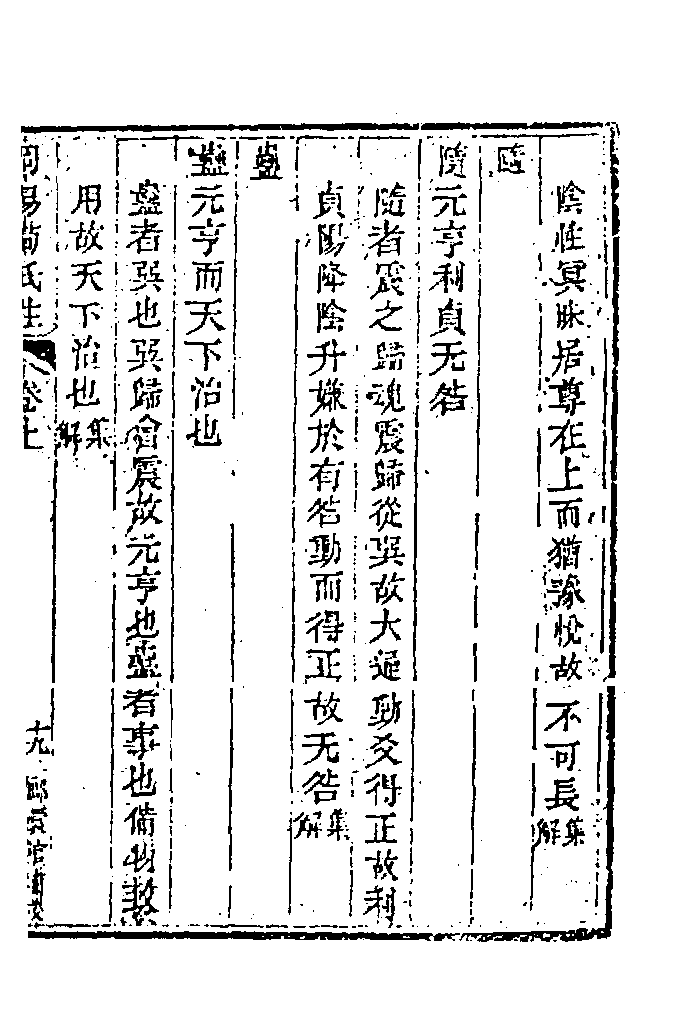 陰性冥昧居尊在上而猶豫悅故不可長集解
隨
隨元亨利貞无咎
隨者震之歸魂震歸從巽故大通動爻得正故利
貞陽降陰升嫌於有咎動而得正故无咎集解
蠱
蠱元亨而天下治也
蠱者巽也巽歸合震故元亨也蠱者事也備物致
用故天下治也集解
周易荀氏注 卷上 十九